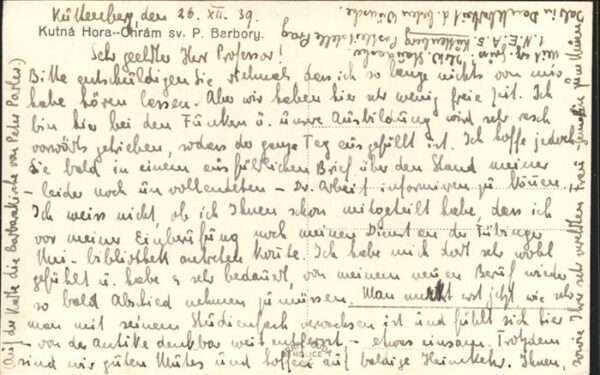 Kuttenberg, den 26. XII. 39.
Kutná Hora-Chrám sv. P. Barbory.
Sehr geehrter Herr Professor!
Bitte entschuldigen Sie vielmals, dass ich so lange nichts von mir
habe hören lassen. Aber wir haben hier sehr wenig freie Zeit. Ich
bin hier bei den Funkern u. unsere Ausbildung wird sehr rasch
vorwärts getrieben, sodass der ganze Tag ausgefüllt ist. Ich hoffe jedoch
Sie bald in einem ausführlichen Brief über den Stand meiner
– leider noch unvollendeten – Dr. Arbeit informieren zu können.
Ich weiss nicht, ob ich Ihnen schon mitgeteilt habe, dass ich
vor meiner Einberufung noch meinen Dienst an der Tübinger
Uni-bibliothek antreten konnte. Ich habe mich dort sehr wohl
gefühlt u. habe es sehr bedauert, von meinem neuen Beruf wieder
so bald Abschied nehmen zu müssen. Man merkt erst jetzt wie sehr
man mit seinem Studienfach verwachsen ist und fühlt sich hier
– von der Antike denkbar weit entfernt – etwas einsam. Trotzdem
sind wir guten Mutes und hoffen auf baldige Heimkehr. Ihnen,
sowie Ihrer sehr verehrten Frau Gemahlin zum Neuen
Jahr in Dankbarkeit d. besten Wünsche.
(Auf der Karte die Barbarakirche von Peter Parler)